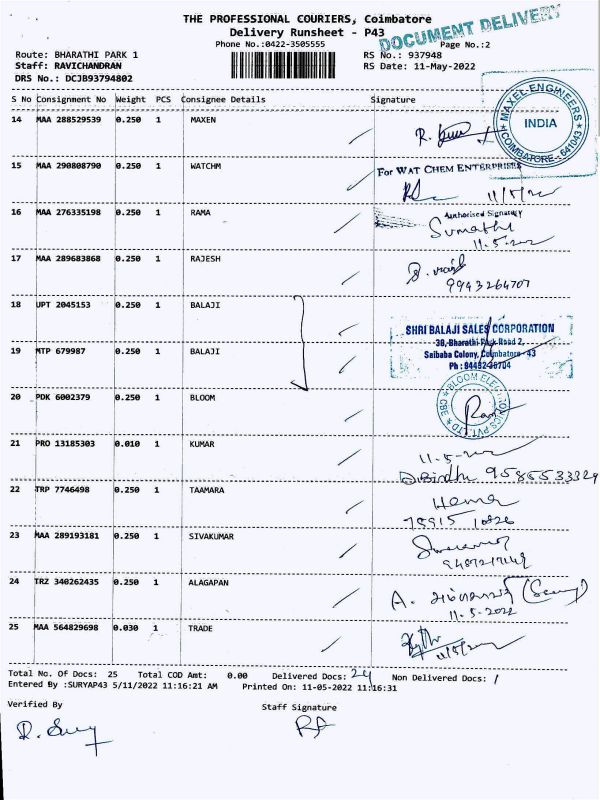 THE PROFESSIONAL COURIERS, Coimbatore
Delivery Runsheet - P43
DOCUMENT DELIVERY
Phone No.:0422-3505555
Page No.:2
Route: BHARATHI PARK 1
RS No.: 937948
Staff: RAVICHANDRAN
RS Date: 11-May-2022
DRS No.: DCJB93794802
S No Consignment No Weight PCS Consignee Details Signature
14 MAA 288529539 0.250 1 MAXEN
MAXEL ENGINEERS
INDIA
COIMBATORE - 641043
15 MAA 290808790 0.250 1 WATCHM
For WAT CHEM ENTERPRISES
11/5/2022
Authorised Signatory
16 MAA 276335198 0.250 1 RAMA
Sumathi
11-5-2022
17 MAA 289683868 0.250 1 RAJESH
9943264707
18 UPT 2045153 0.250 1 BALAJI
SHRI BALAJI SALES CORPORATION
38, Bharathi Park Road 2,
19 MTP 679987 0.250 1 BALAJI
Saibaba Colony, Coimbatore - 43
20 PDK 6002379 0.250 1 BLOOM
BLOOM ELECTRONICS PVT. LTD
CBE
21 PRO 13185303 0.010 1 KUMAR
11-5-2022
9585533329
22 TRP 7746498 0.250 1 TAAMARA
Hema
23 MAA 289193181 0.250 1 SIVAKUMAR
24 TRZ 340262435 0.250 1 ALAGAPAN
A.
11-5-2022
25 MAA 564829698 0.030 1 TRADE
11/5/2022
Total No. Of Docs: 25 Total COD Amt: 0.00 Delivered Docs: 24 Non Delivered Docs: 1
Entered By :SURYAP43 5/11/2022 11:16:21 AM Printed On: 11-05-2022 11:16:31
Verified By
Staff Signature